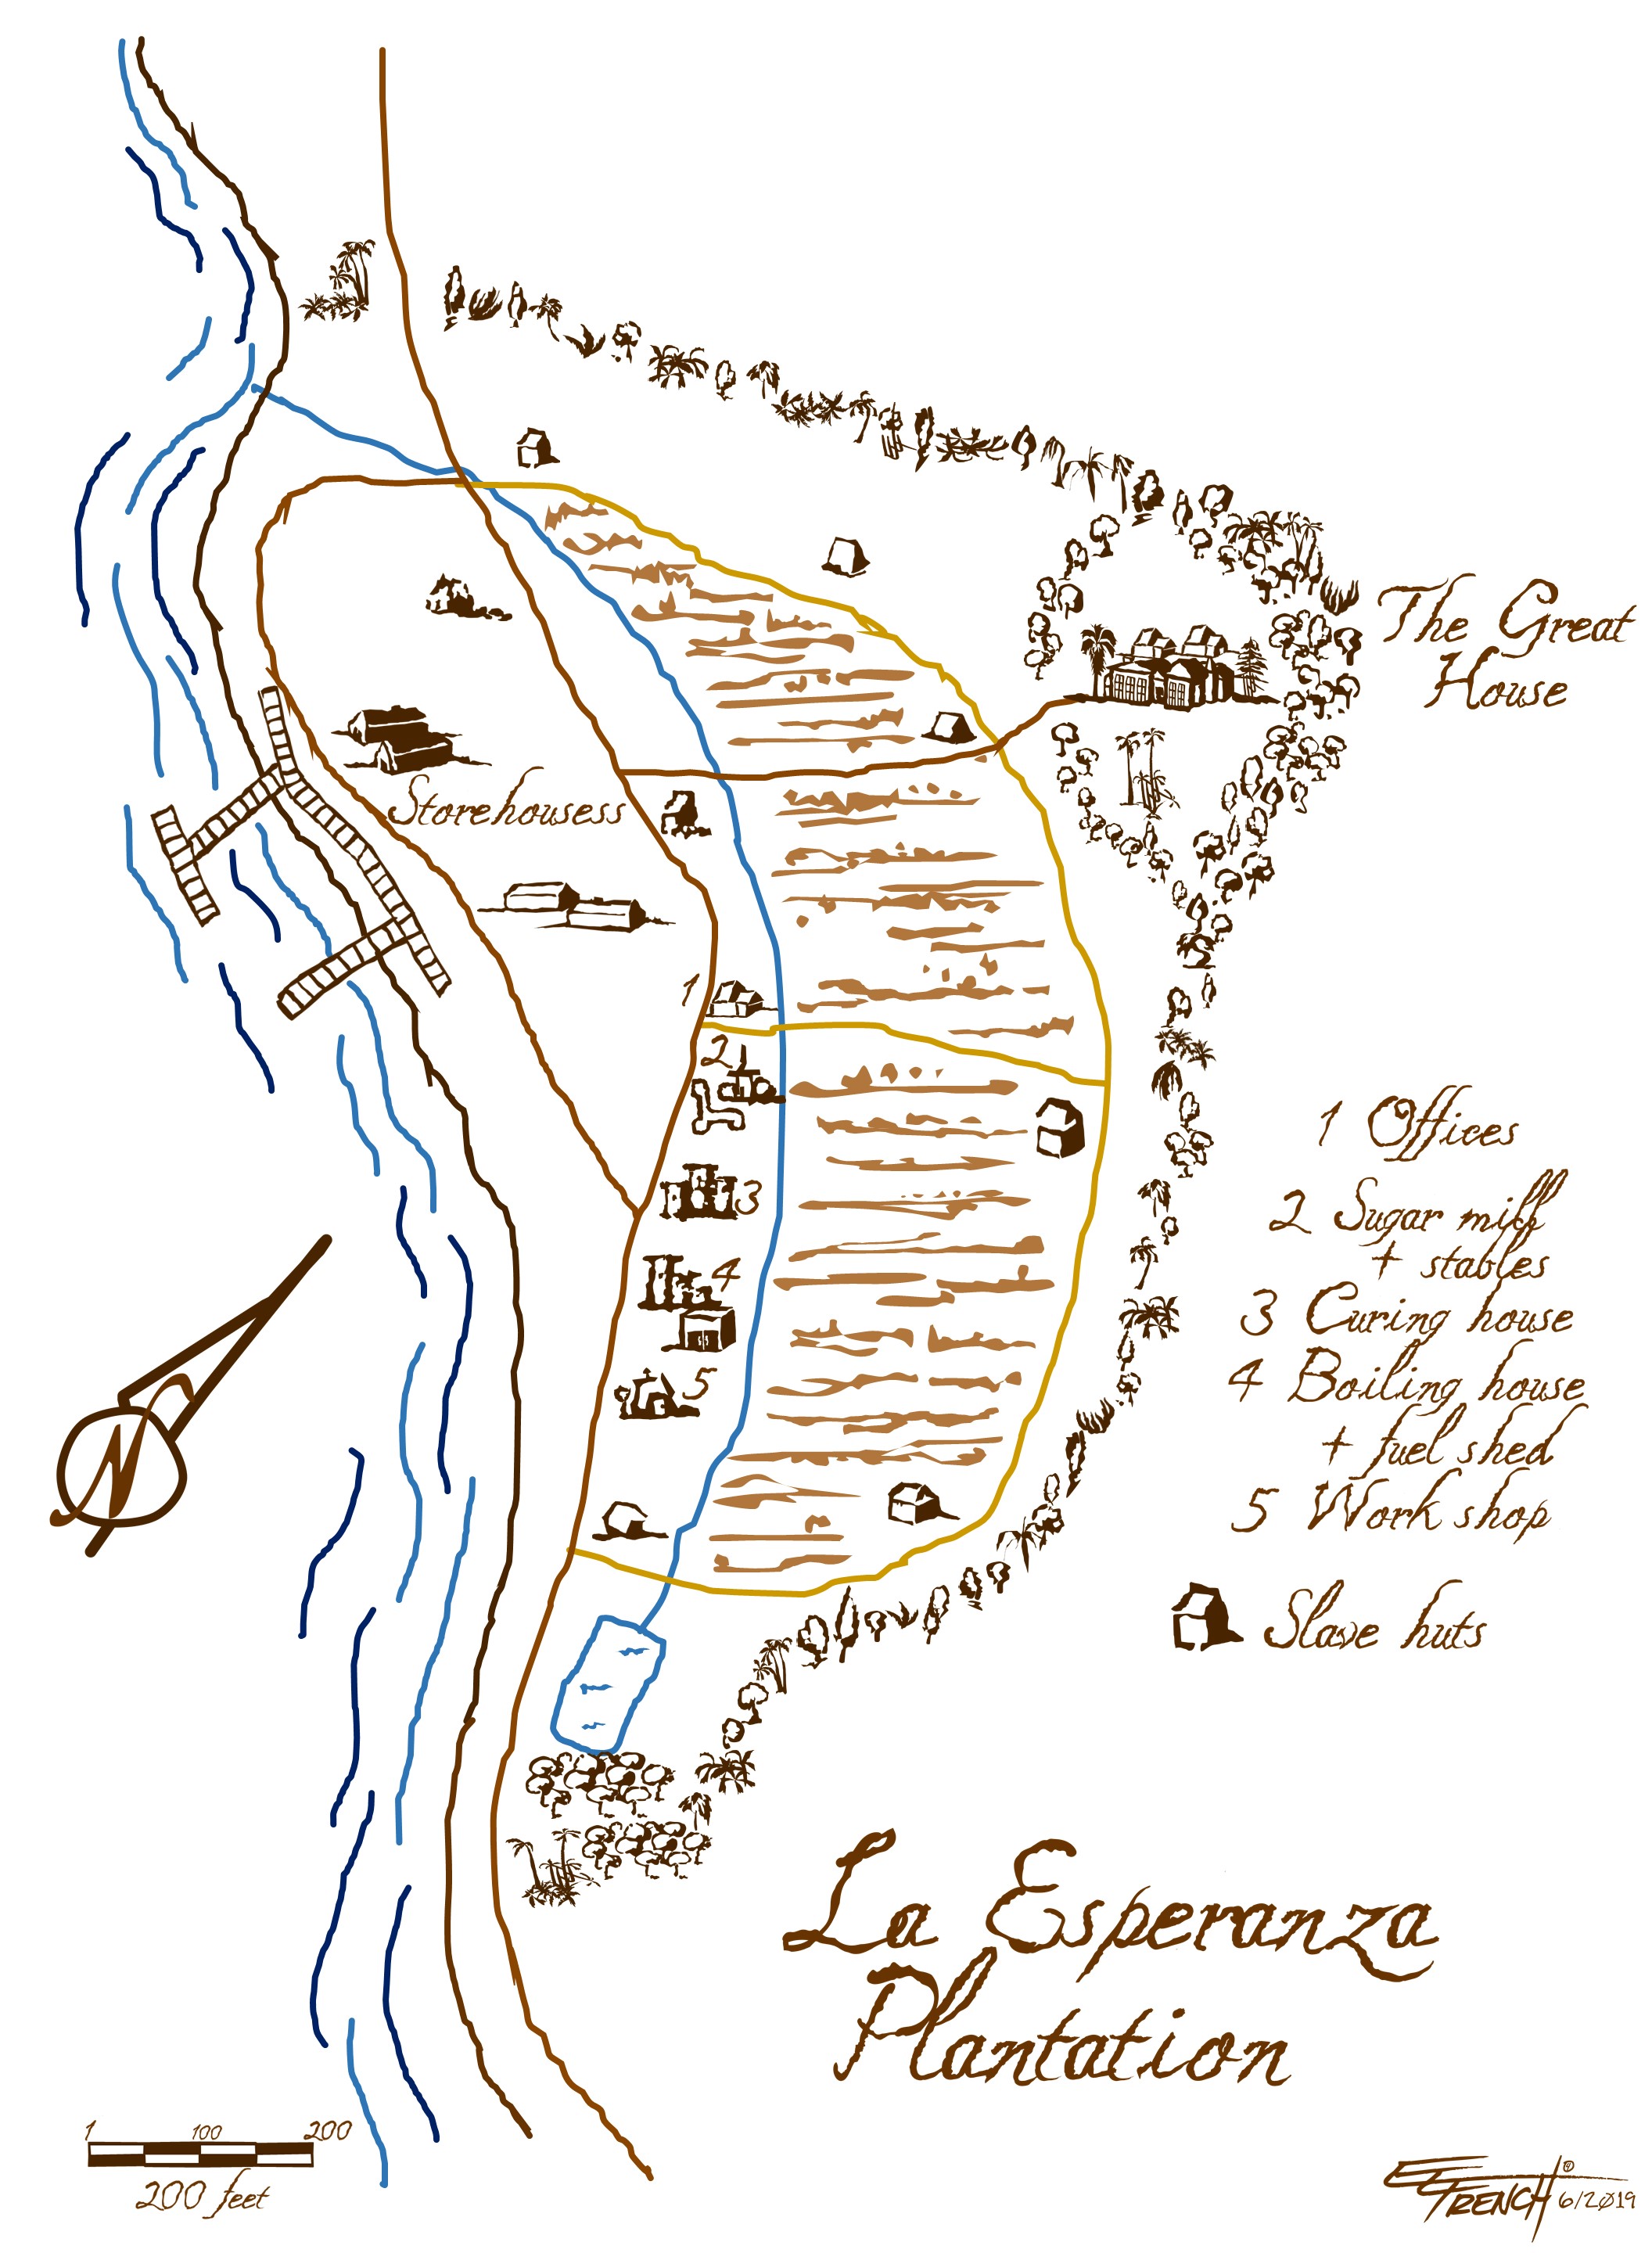 The Great
House
Storehousess
1
2
3
4
5
1 Offices
2 Sugar mill
+ stables
3 Curing house
4 Boiling house
+ fuel shed
5 Work shop
Slave huts
N
La Esperanza
Plantation
1 100 200
200 feet
EFRENCH® 6/2019